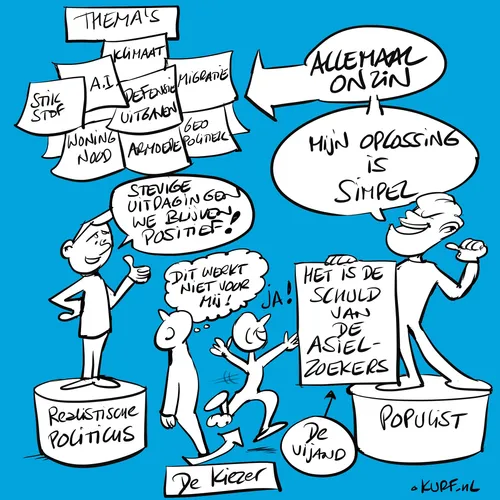 THEMA'S
KLIMAAT
A.I.
MIGRATIE
STIK
STOF
DEFENSIE
UITGAVEN
WONING
NOOD
ARMOEDE
GEO
POLITIEK
ALLEMAAL
ONZIN
MIJN OPLOSSING
IS
SIMPEL
STEVIGE
UITDAGINGEN
WE BLIJVEN
POSITIEF!
DIT WERKT
NIET VOOR
MIJ!
JA!
HET IS DE
SCHULD
VAN
DE
ASIEL-
ZOEKERS
REALISTISCHE
POLITICUS
De Kiezer
De
VIJAND
POPULIST
.KURF.NL